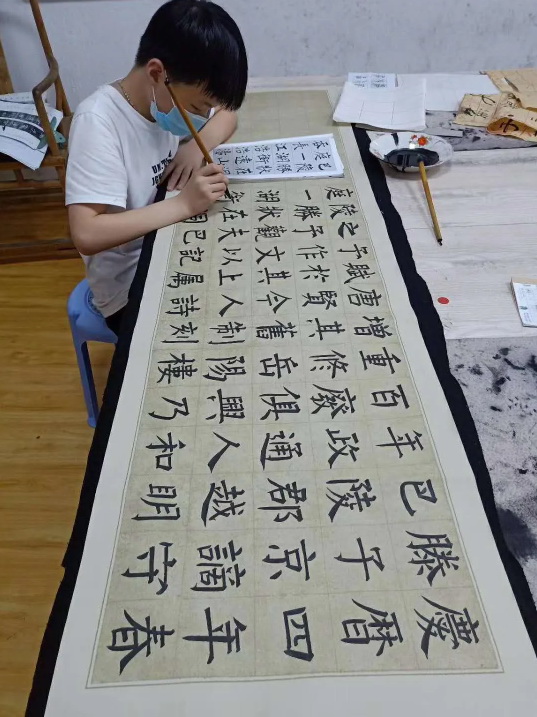 慶曆四年春
滕子京謫守
巴陵郡越明
年政通人和
百廢俱興乃
重修岳陽樓
增其舊制刻
唐賢今人詩
賦於其上屬
予作文以記
之予觀夫巴
陵勝狀在洞
庭一湖